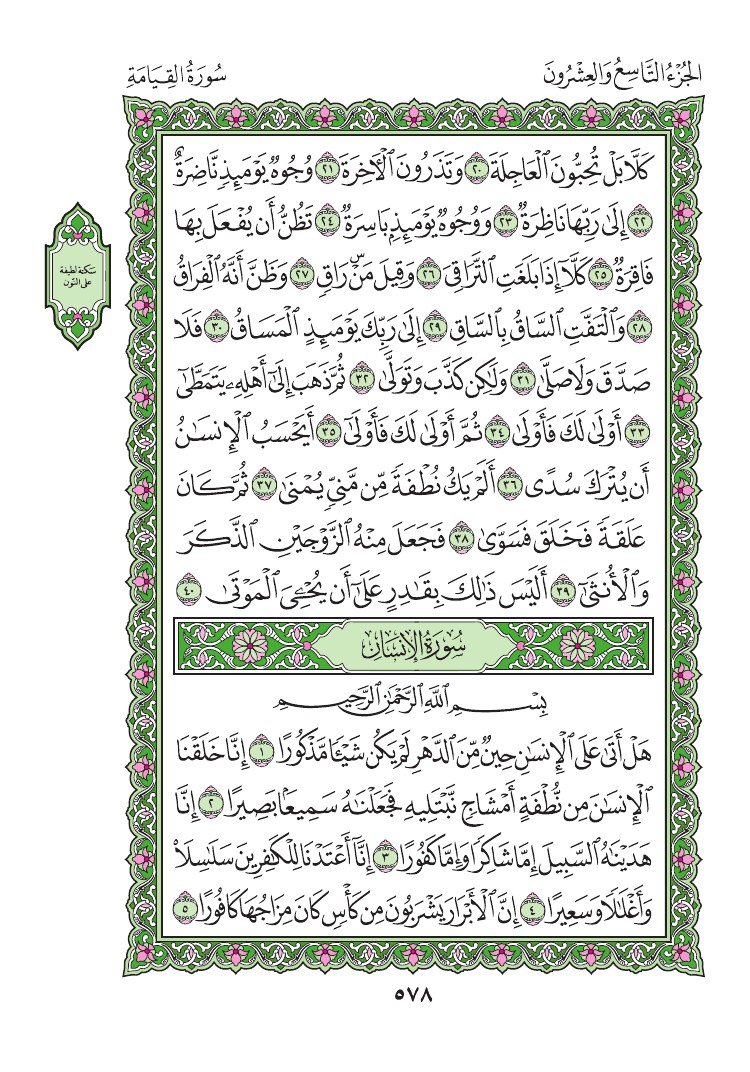 الجُزْءُ التَّاسِعُ وَالعِشْرُونَ
سُورَةُ القِيَامَةِ
كَلَّا بَلْ تُحِبُّونَ ٱلْعَاجِلَةَ ٢٠ وَتَذَرُونَ ٱلْأٓخِرَةَ ٢١ وُجُوهٞ يَوۡمَئِذٖ نَّاضِرَةٌ
٢٢ إِلَىٰ رَبِّهَا نَاظِرَةٞ ٢٣ وَوُجُوهٞ يَوۡمَئِذِۭ بَاسِرَةٞ ٢٤ تَظُنُّ أَن يُفۡعَلَ بِهَا
فَاقِرَةٞ ٢٥ كَلَّآ إِذَا بَلَغَتِ ٱلتَّرَاقِيَ ٢٦ وَقِيلَ مَنۡۜ رَاقٖ ٢٧ وَظَنَّ أَنَّهُ ٱلۡفِرَاقُ
٢٨ وَٱلۡتَفَّتِ ٱلسَّاقُ بِٱلسَّاقِ ٢٩ إِلَىٰ رَبِّكَ يَوۡمَئِذٍ ٱلۡمَسَاقُ ٣٠ فَلَا
صَدَّقَ وَلَا صَلَّىٰ ٣١ وَلَٰكِن كَذَّبَ وَتَوَلَّىٰ ٣٢ ثُمَّ ذَهَبَ إِلَىٰٓ أَهۡلِهِۦ يَتَمَطَّىٰٓ
٣٣ أَوۡلَىٰ لَكَ فَأَوۡلَىٰ ٣٤ ثُمَّ أَوۡلَىٰ لَكَ فَأَوۡلَىٰٓ ٣٥ أَيَحۡسَبُ ٱلۡإِنسَٰنُ
أَن يُتۡرَكَ سُدًى ٣٦ أَلَمۡ يَكُ نُطۡفَةٗ مِّن مَّنِيّٖ يُمۡنَىٰ ٣٧ ثُمَّ كَانَ
عَلَقَةٗ فَخَلَقَ فَسَوَّىٰ ٣٨ فَجَعَلَ مِنۡهُ ٱلزَّوۡجَيۡنِ ٱلذَّكَرَ
وَٱلۡأُنثَىٰٓ ٣٩ أَلَيۡسَ ذَٰلِكَ بِقَٰدِرٍ عَلَىٰٓ أَن يُحۡـِۧيَ ٱلۡمَوۡتَىٰ ٤٠
سكتة لطيفة
على النّون
سُورَةُ الإِنسَانِ
بِسۡمِ ٱللَّهِ ٱلرَّحۡمَٰنِ ٱلرَّحِيمِ
هَلۡ أَتَىٰ عَلَى ٱلۡإِنسَٰنِ حِينٞ مِّنَ ٱلدَّهۡرِ لَمۡ يَكُن شَيۡـٔٗا مَّذۡكُورًا ١ إِنَّا خَلَقۡنَا
ٱلۡإِنسَٰنَ مِن نُّطۡفَةٍ أَمۡشَاجٖ نَّبۡتَلِيهِ فَجَعَلۡنَٰهُ سَمِيعَۢا بَصِيرًا ٢ إِنَّا
هَدَيۡنَٰهُ ٱلسَّبِيلَ إِمَّا شَاكِرٗا وَإِمَّا كَفُورًا ٣ إِنَّآ أَعۡتَدۡنَا لِلۡكَٰفِرِينَ سَلَٰسِلَاْ
وَأَغۡلَٰلٗا وَسَعِيرًا ٤ إِنَّ ٱلۡأَبۡرَارَ يَشۡرَبُونَ مِن كَأۡسٖ كَانَ مِزَاجُهَا كَافُورًا ٥
٥٧٨